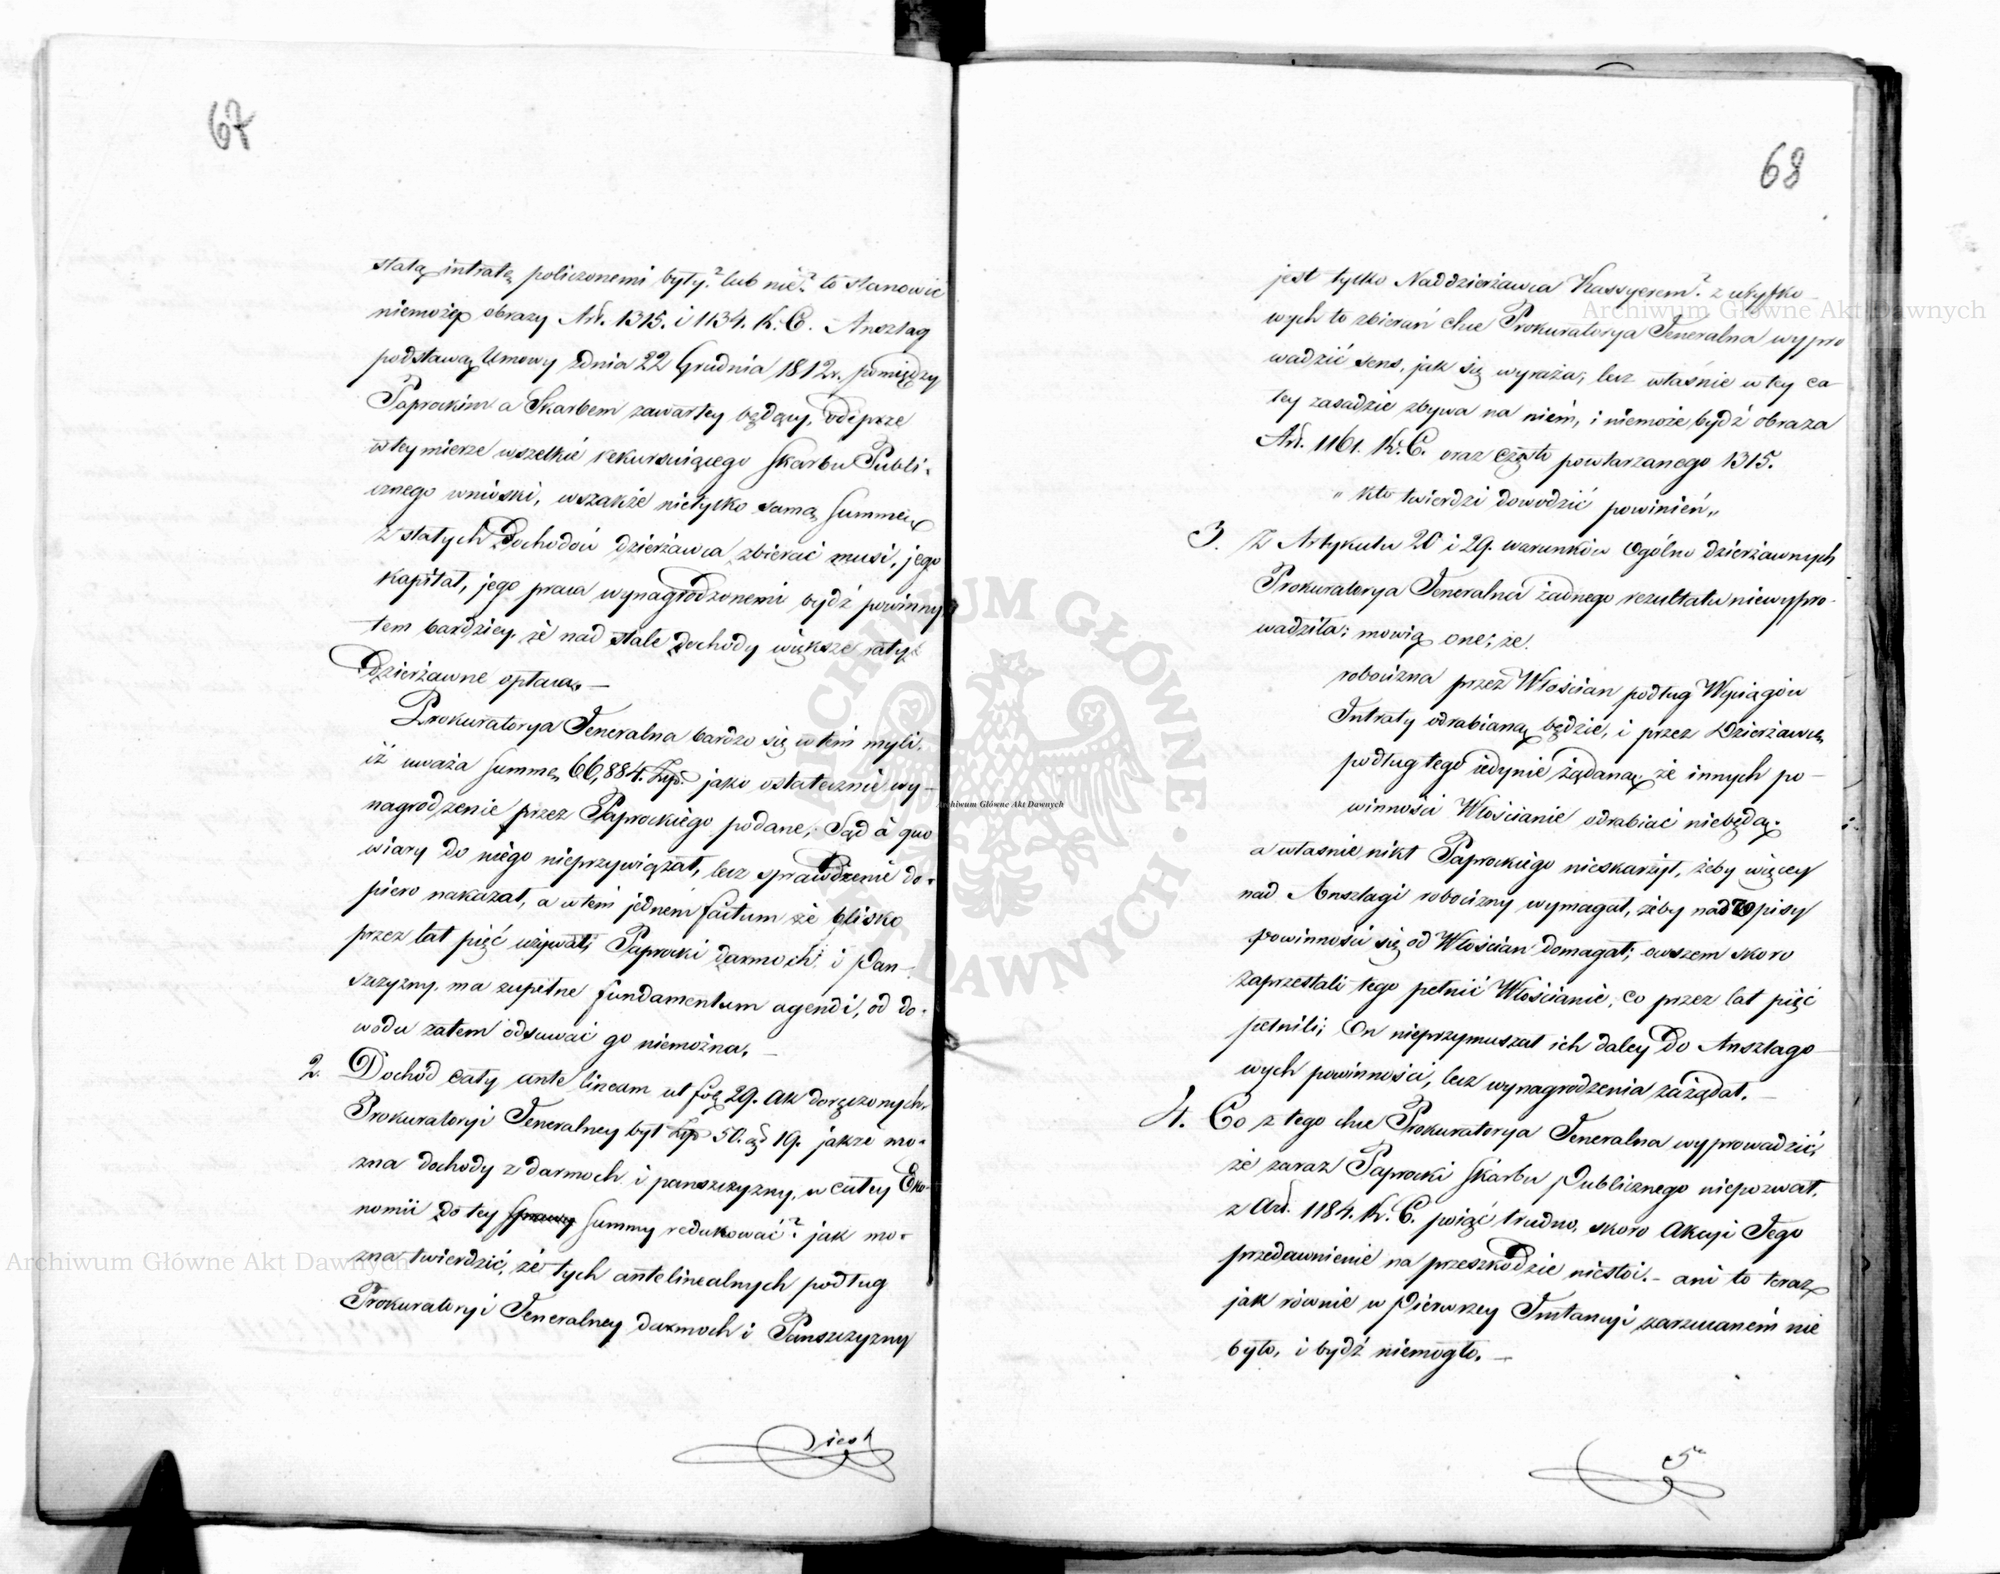 67
stałą intratę policzonemi były? lub nie? to stanowić
niemoże obrazy Art. 1315. i 1134. K. C. Anszlag
podstawą Umowy zdnia 22 Grudnia 1812 r. pomiędzy
Paprockim a Skarbem zawartey będący, odeprze
wtey mierze wszelkie rekursuiącego Skarbu Publi-
cznego wnioski, wszakże nietylko samą Summę
z stałych Dochodów dzierżawca zbierać musi, jego
kapitał, jego praca wynagrodzonemi bydź powinny
tem bardziey, że nad stałe dochody większe raty
Dzierżawne opłaca. —
Prokuratorya Generalna bardzo się wtem myli,
iż uważa Summę 66,884. Złp. jako ostatecznie wy-
nagrodzenie przez Paprockiego podane, Sąd à quo
wiary do niego nieprzywiązał, lecz sprawdzenie do-
piero nakazał, a wtem jednem factum że blisko
przez lat pięć używał Paprocki darmoch i Pan-
szczyzny, ma zupełne fundamentum agendi, od do-
wodu zatem odsuwać go niemożna. —
2. Dochód cały ante lineam ut fol 29. Akt doręczonych
Prokuratoryi Generalney był Złp 50. gr 19. jakże mo-
zna dochody z darmoch i panszczyzny, w całey Eko-
nomii do tey sprawy Summy redukować? jak mo-
zna twierdzić, że tych antelinealnych podług
Prokuratoryi Generalney darmoch i Panszczyzny
jest
68
jest tylko Naddzierżawca Kassyerem? z
wych to zbierań chce Prokuratorya Generalna wypro
wadzić sens, jak się wyraża; lecz właśnie w tey ca-
łey zasadzie zbywa na niem, i niemoże bydź obraza
Art. 1161. K. C. oraz często powtarzanego 1315.
" kto twierdzi dowodzić powinień "
3. Z Artykułu 20 i 29. warunków Ogólno dzierżawnych
Prokuratorya Generalna żadnego rezultatu niewypro-
wadziła; mowią one; że.
robocizna przez Włościan podług Wyciągów
Intraty odrabianą będzie, i przez Dzierżawcę
podług tego iedynie żądaną że innych po-
winności Włościanie odrabiać niebędą.
a właśnie nikt Paprockiego nieskarżył, żeby więcey
nad Anszlagi robocizny wymagał, żeby nad opisy
powinności się od Włościan domagał; owszem skoro
zaprzestali tego pełnić Włościanie, co przez lat pięć
pełnili; On nieprzymuszał ich daley do Anszlago-
wych powinności, lecz wynagrodzenia zażądał. —
4. Co z tego chce Prokuratorya Generalna wyprowadzić,
że zaraz Paprocki Skarbu Publicznego niepozwał,
z Art. 1184. K. C. poiąć trudno, skoro Akcyi Jego
przedawnienie na przeszkodzie niestoi. — ani to teraz
jak równie w Pierwszey Instancyi zarzucanem nie
było, i bydź niemogło. —
5
Archiwum Główne Akt Dawnych
Archiwum Główne Akt Dawnych
Archiwum Główne Akt Dawnych
ARCHIWUM GŁÓWNE AKT DAWNYCH